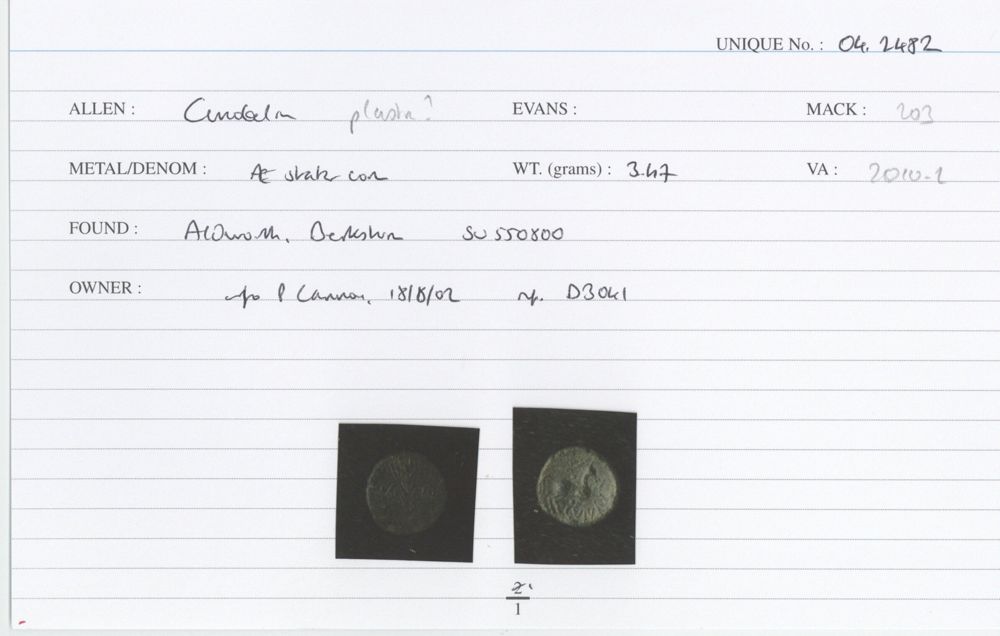 UNIQUE No. : 04.2482
ALLEN : Cunobelin plastr? EVANS : MACK : 203
METAL/DENOM : Æ stater core WT. (grams) : 3.47 VA : 2010-1
FOUND : Aldworth, Berkshire SU 550800
OWNER : P Cannon, 18/8/02 D3041
2
1